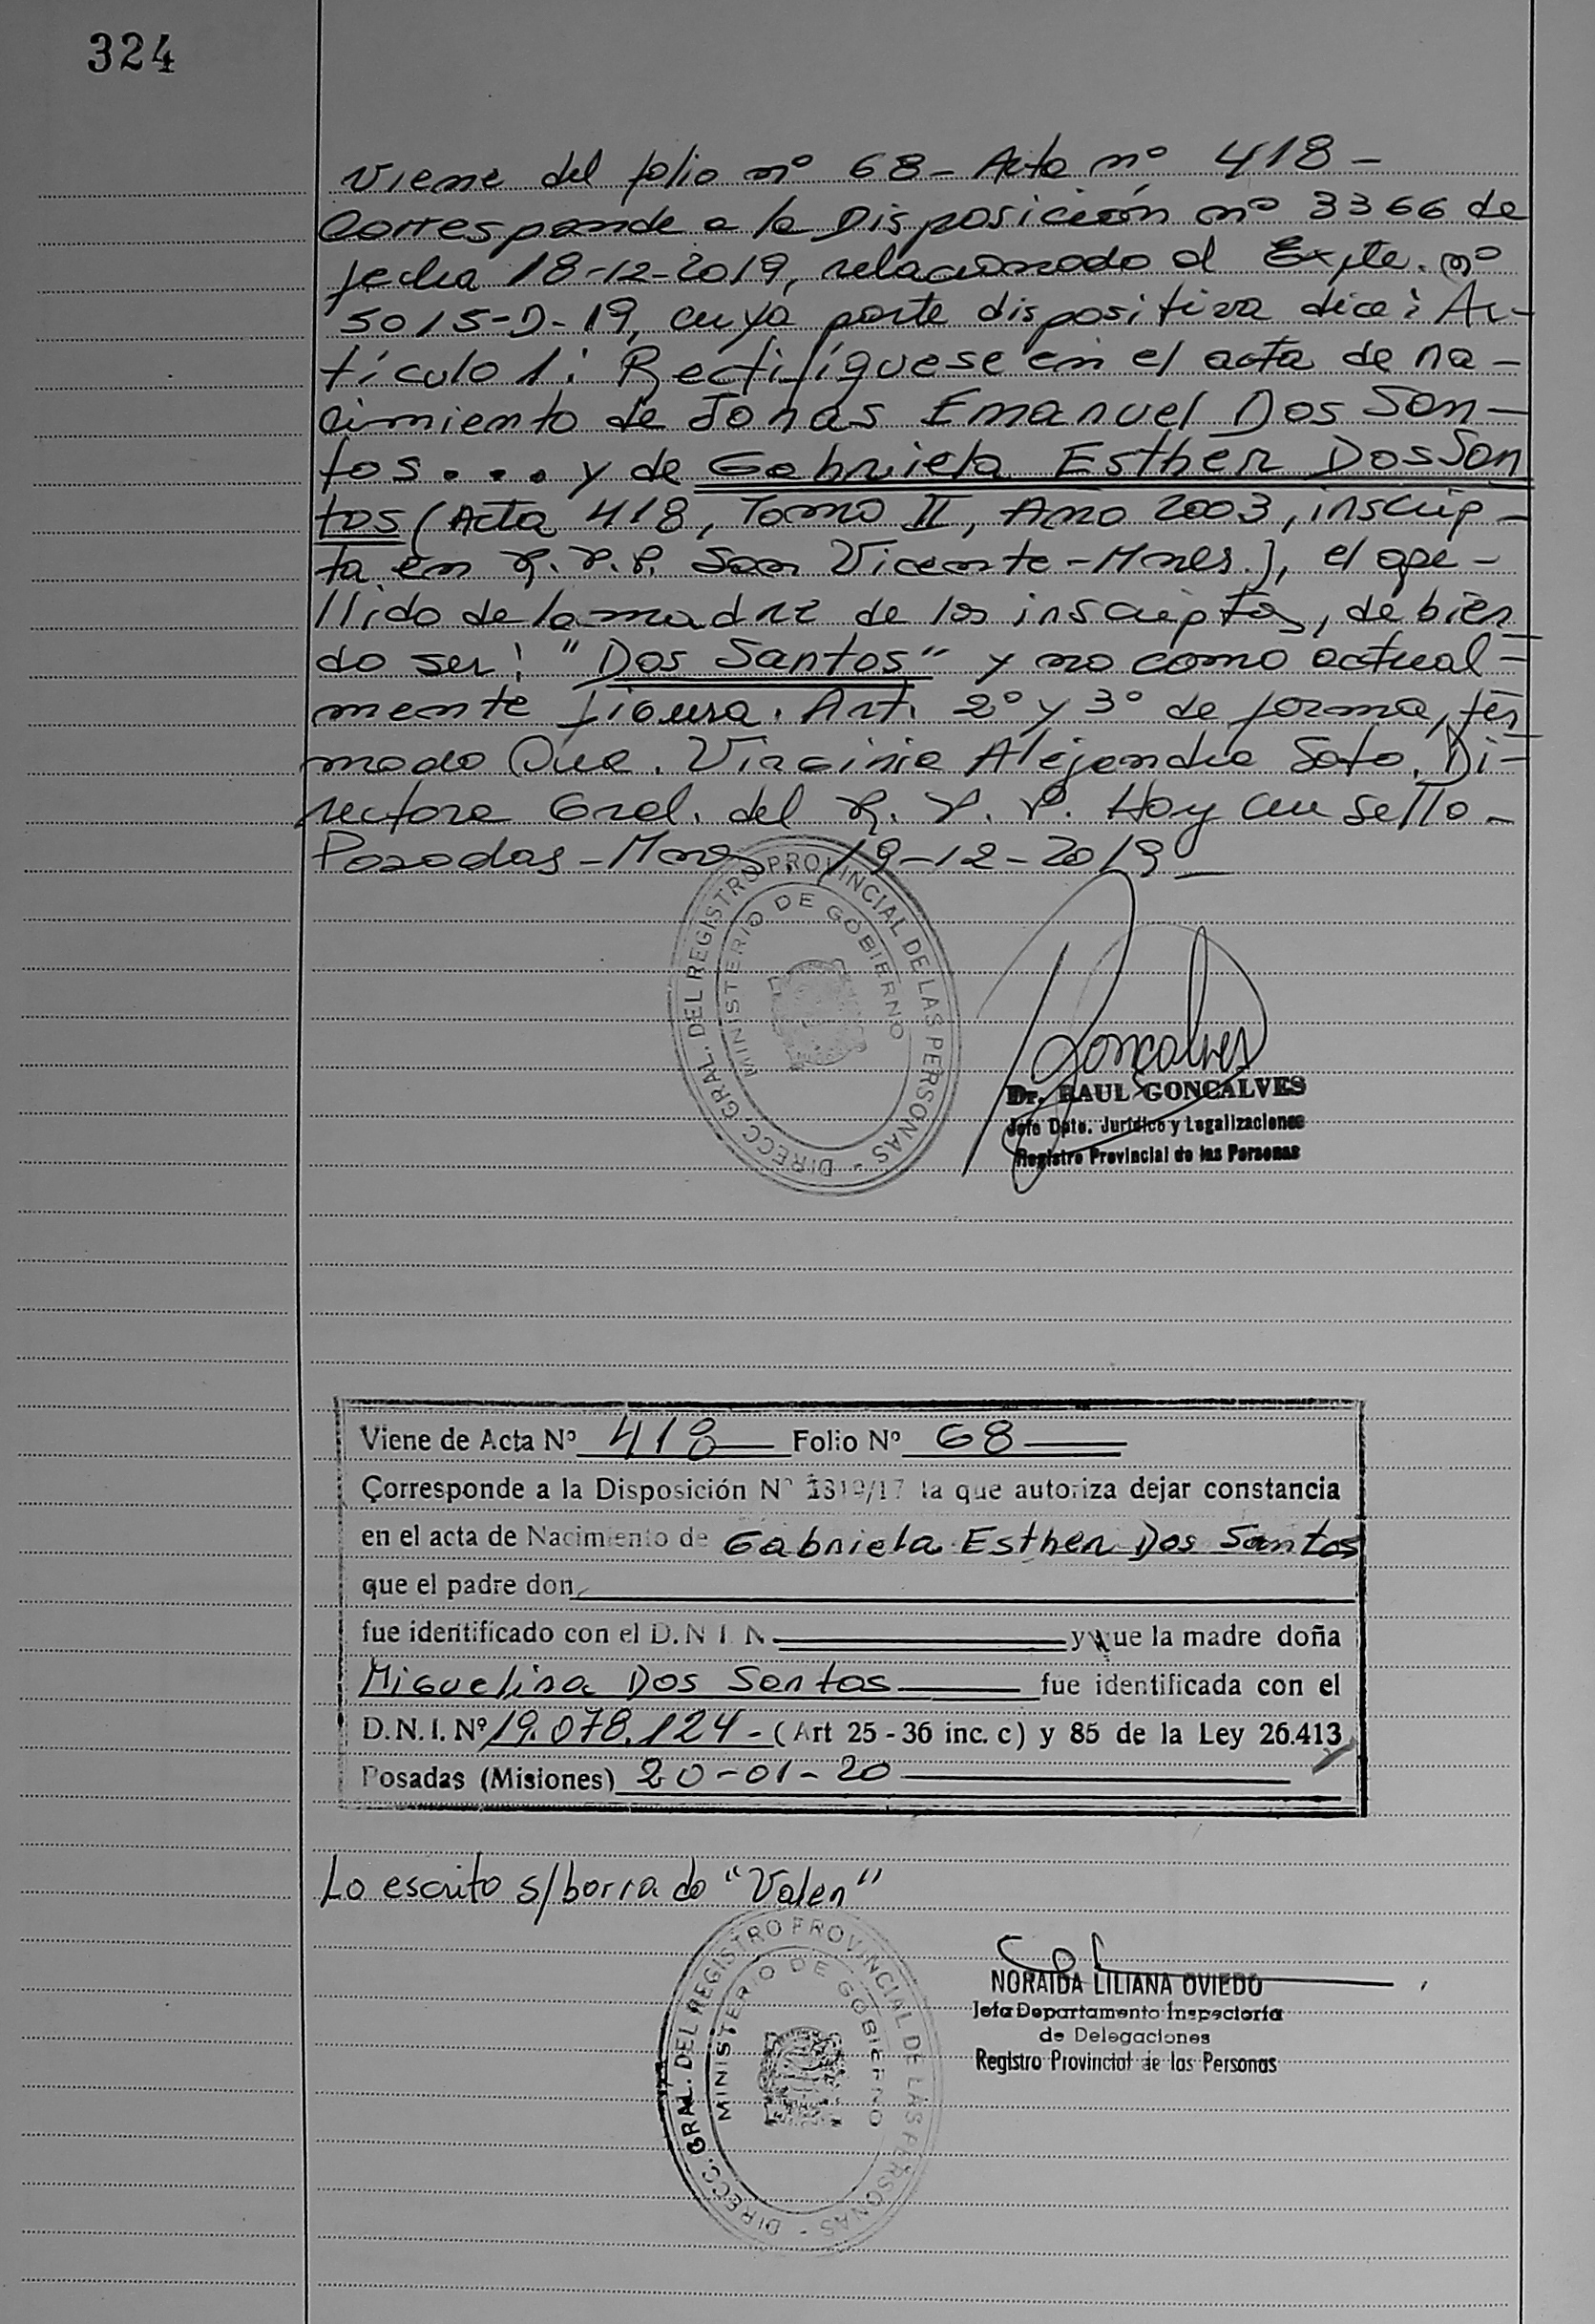 324
Viene del folio nº 68 - Acta nº 418 -
Corresponde a la Disposición nº 3366 de
fecha 18-12-2019, relacionado al Expte. nº
5015-D-19, cuya parte dispositiva dice: Ar-
tículo 1: Rectifíquese en el acta de na-
cimiento de Jonas Emanuel Dos San-
tos.... y de Gabriela Esther Dos San
tos (Acta 418, Tomo II, Año 2003, inscrip-
ta en R.P.P. San Vicente - Mnes.), el ape-
llido de la madre de los inscriptos, debien
do ser: "Dos Santos" y no como actual-
mente figura. Art. 2º y 3º de forma, fir
mado Dra. Virginia Alejandra Soto. Di-
rectora Gral. del R. P. P. Hay un sello -
Posadas - Mnes, 19-12-2019 -
DIRECC. GRAL. DEL REGISTRO PROVINCIAL DE LAS PERSONAS -
MINISTERIO DE GOBIERNO
Goncalves
Dr. RAUL GONCALVES
Jefe Dpto. Jurídico y Legalizaciones
Registro Provincial de las Personas
Viene de Acta Nº 418 Folio Nº 68
Corresponde a la Disposición Nº 1319/17 la que autoriza dejar constancia
en el acta de Nacimiento de Gabriela Esther Dos Santos
que el padre don
fue identificado con el D.N.I. N y que la madre doña
Miguelina Dos Santos fue identificada con el
D.N.I. Nº 19.078.124 - (Art 25 - 36 inc. c) y 85 de la Ley 26.413
Posadas (Misiones) 20-01-20
Lo escrito s/borrado "Valen"
DIRECC. GRAL. DEL REGISTRO PROVINCIAL DE LAS PERSONAS -
MINISTERIO DE GOBIERNO
NORAIDA LILIANA OVIEDO
Jefa Departamento Inspectoría
de Delegaciones
Registro Provincial de las Personas